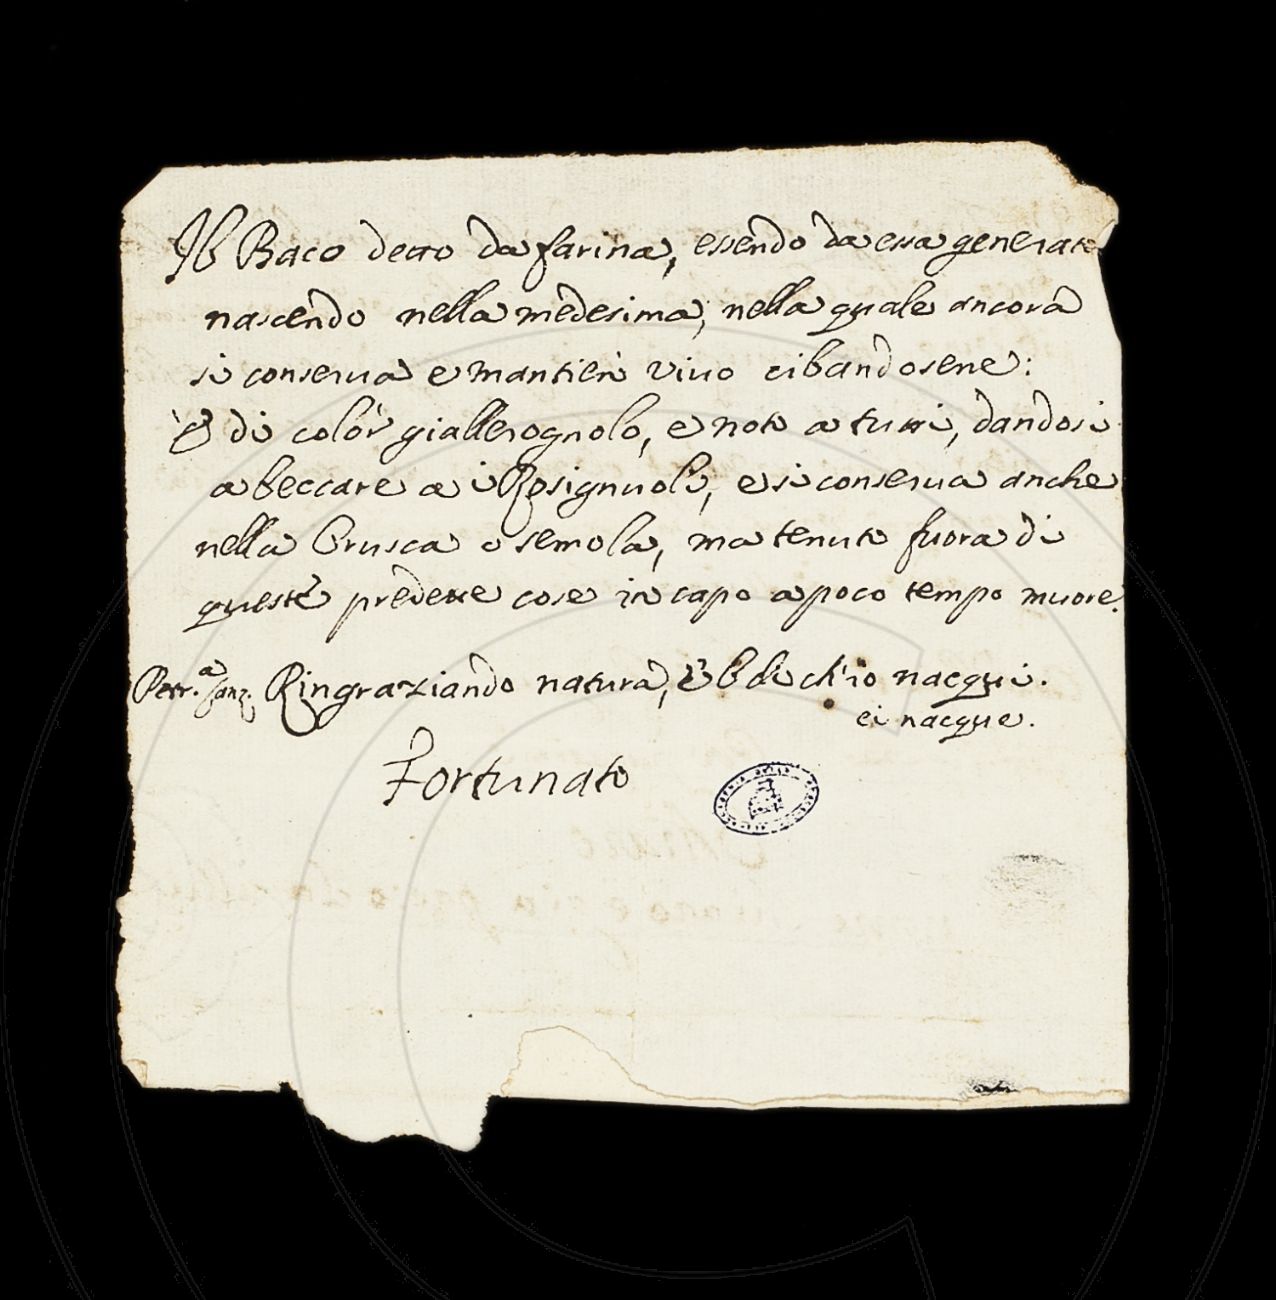 Il Baco detto da farina, essendo da essa generato
nascendo nella medesima, nella quale ancora
si conserva e mantien vivo cibandosene:
è di color giallerognolo, e noto a tutti, dandosi
a beccare a i Rosignuoli, e si conserva anche
nella Crusca o semola, ma tenuto fuora di
queste predette cose in capo a poco tempo muore.
Petr.a Canz. Ringraziando natura, e'l dì ch'io nacqui.
ei nacque.
Fortunato